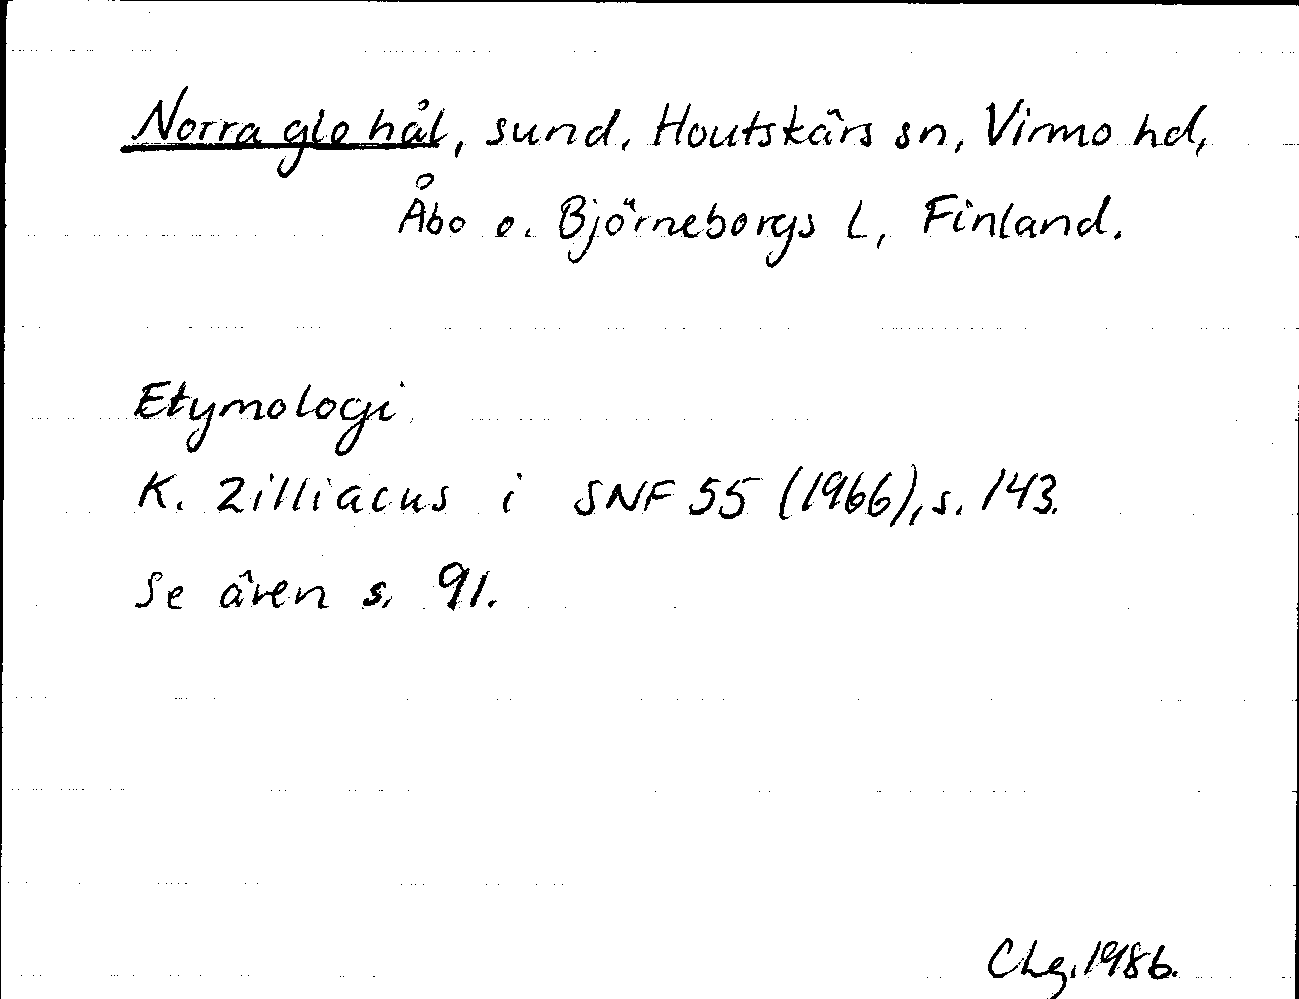 Norra glo hål, sund, Houtskärs sn, Virmo hd,
Åbo o. Björneborgs l, Finland.
Etymologi
K. Zilliacus i SNF 55 (1966), s. 143.
Se även s. 91.
Chg. 1986.